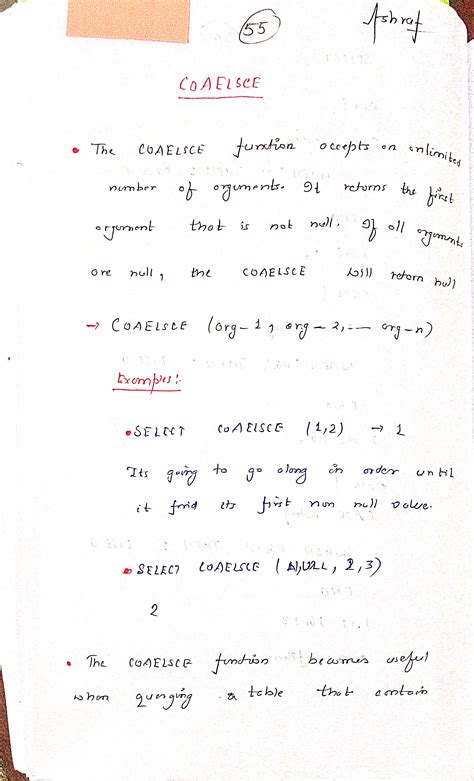 55
Ashraf
COAELSCE
• The COAELSCE function accepts an unlimited
number of arguments. It returns the first
argument that is not null. If all arguments
are null, the COAELSCE will return null
→ COAELSCE (arg-1, arg-2, --- arg-n)
Examples:
• SELECT COAELSCE (1,2) → 1
Its going to go along in order until
it find its first non null value.
• SELECT COAELSCE (NULL, 2, 3)
2
• The COAELSCE function becomes useful
when querying a table that contain